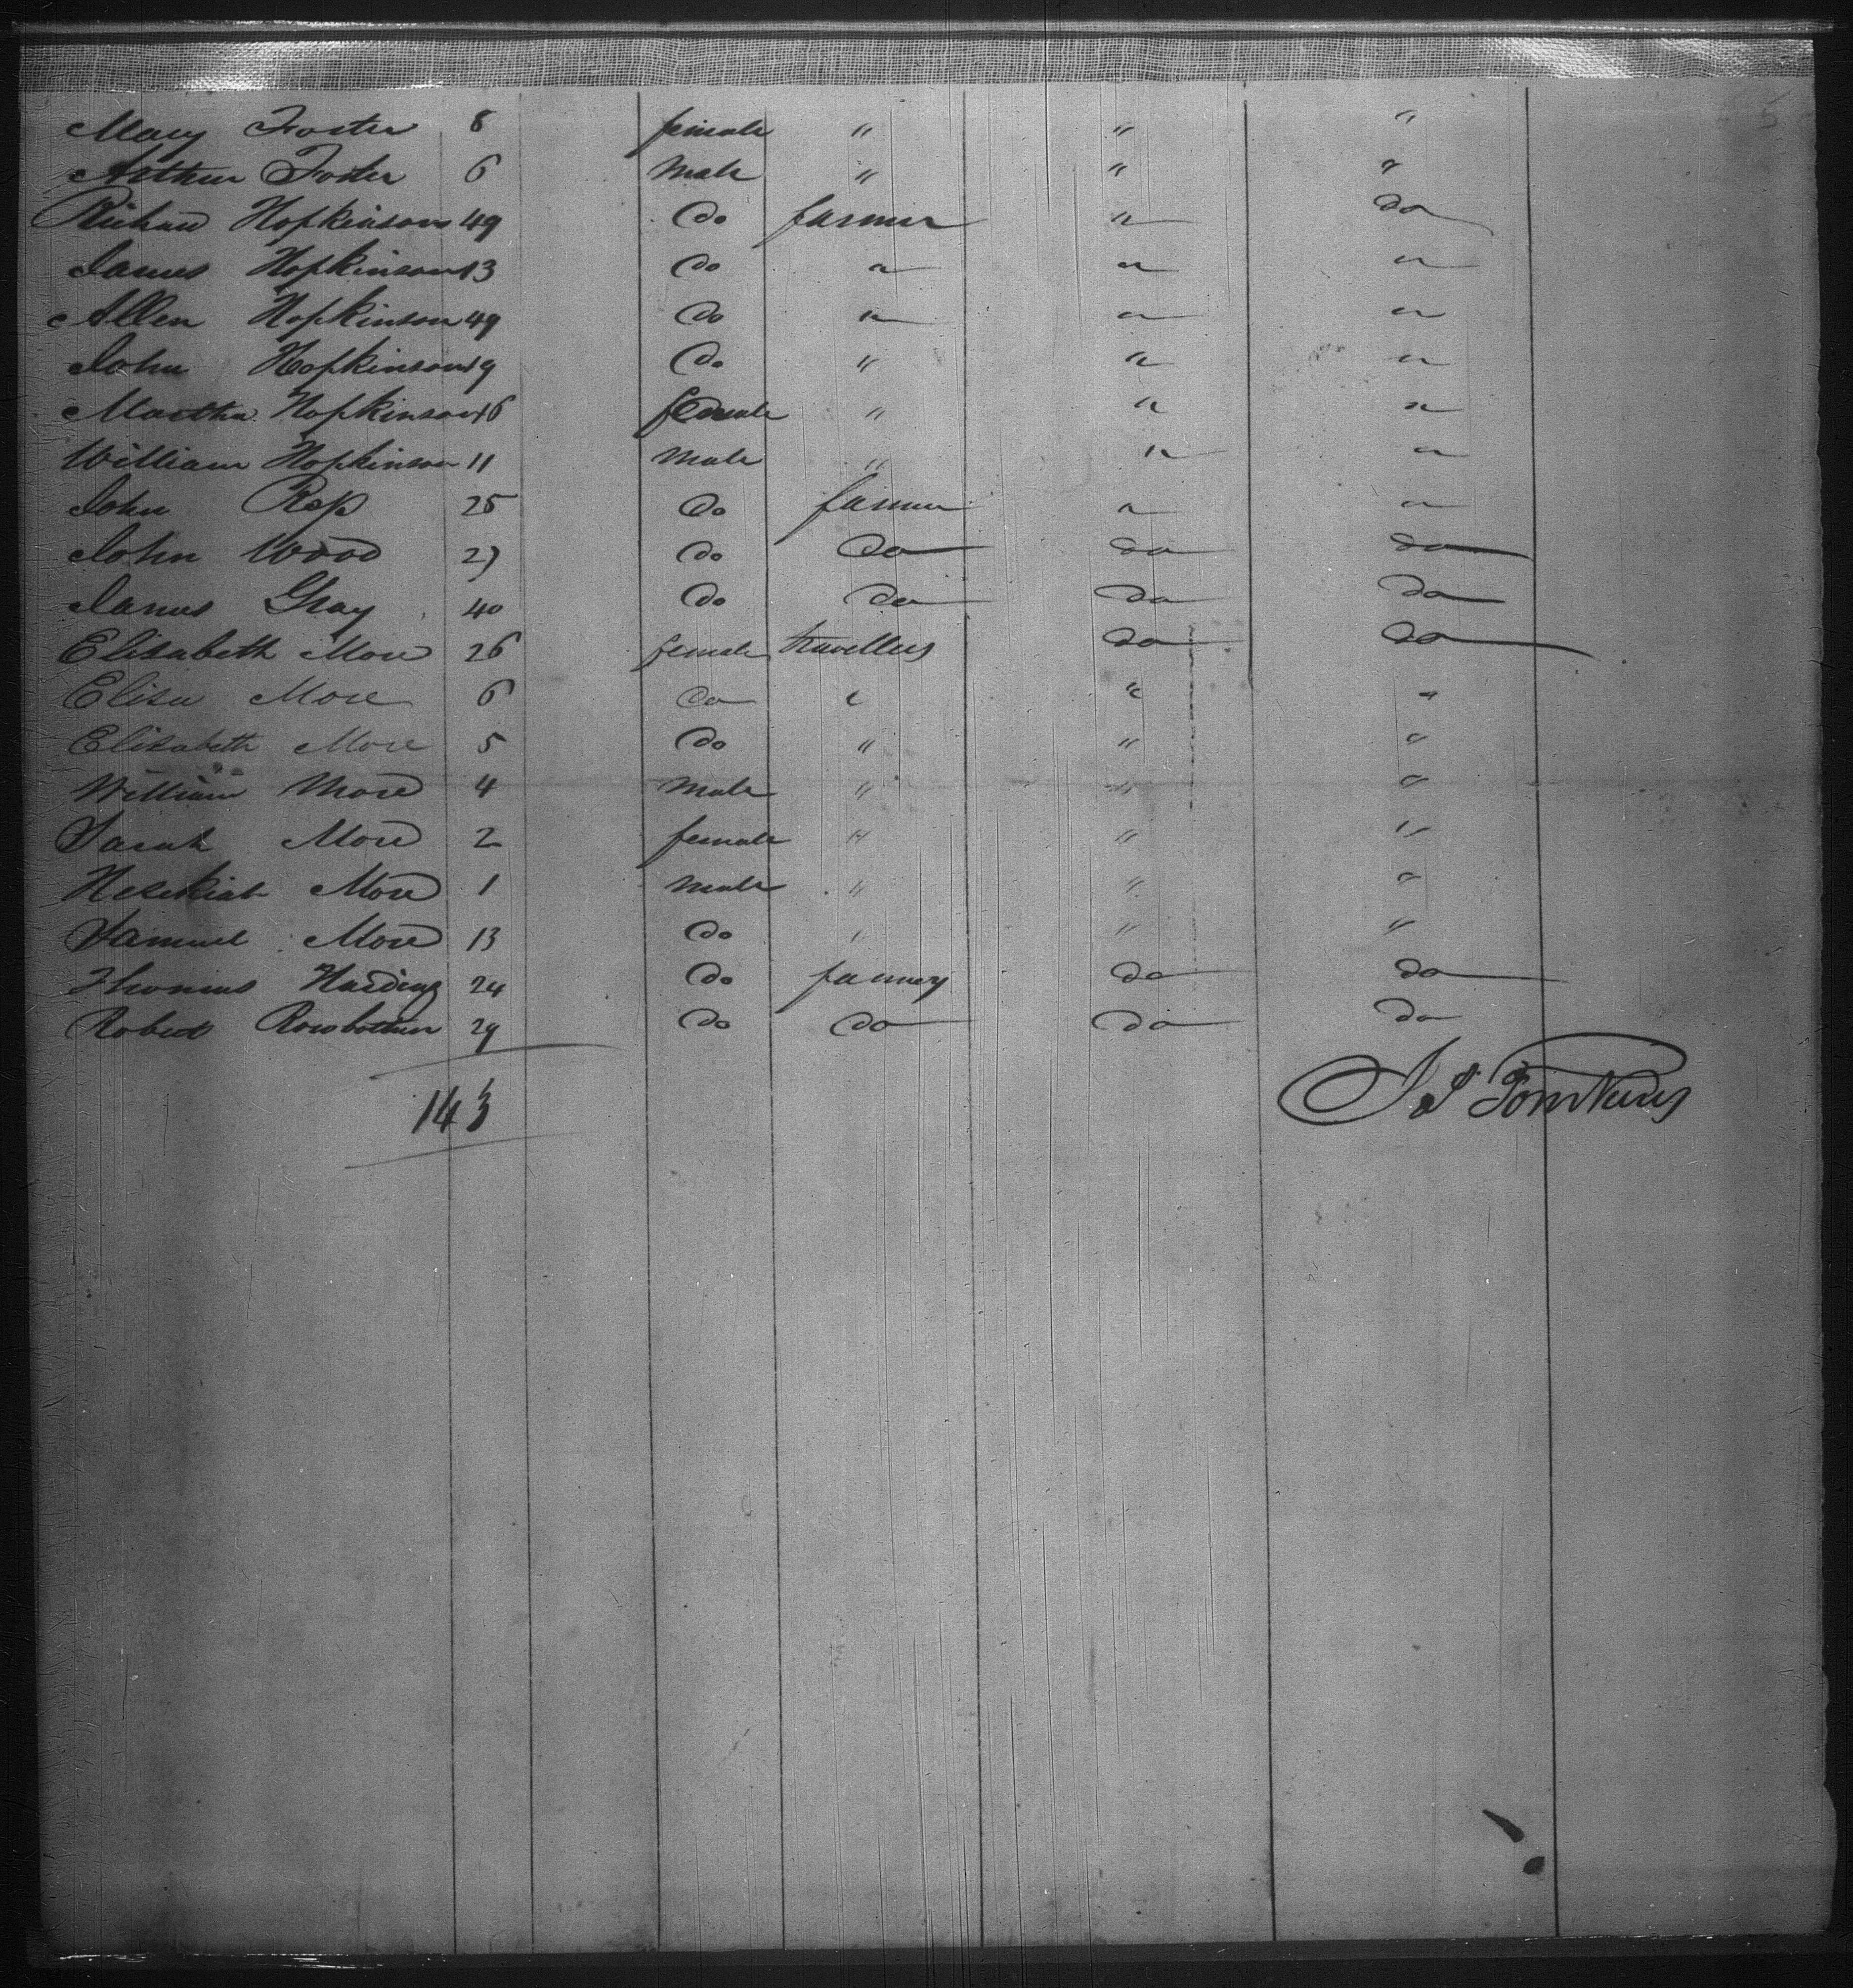 5
Mary Foster 8 female " " "
Arthur Foster 6 Male " " "
Richard Hopkinson 49 Do farmer " Do
James Hopkinson 13 Do " " "
Allen Hopkinson 49 Do " " "
John Hopkinson 19 Do " " "
Martha Hopkinson 16 female " " "
William Hopkinson 11 Male " " "
John 25 Do farmer " "
John Wood 27 Do Do Do Do
James Gray 40 Do Do Do Do
Elisabeth More 26 female travellers Do Do
Elisa More 6 Do " " "
Elisabeth More 5 Do " " "
William More 4 Male " " "
Sarah More 2 female " " "
Hesekiah More 1 Male " " "
Samuel More 13 Do " " "
Thomas Harding 24 Do Do Do
Robert Rowbotham 29 Do Do Do Do
143
Tomkins